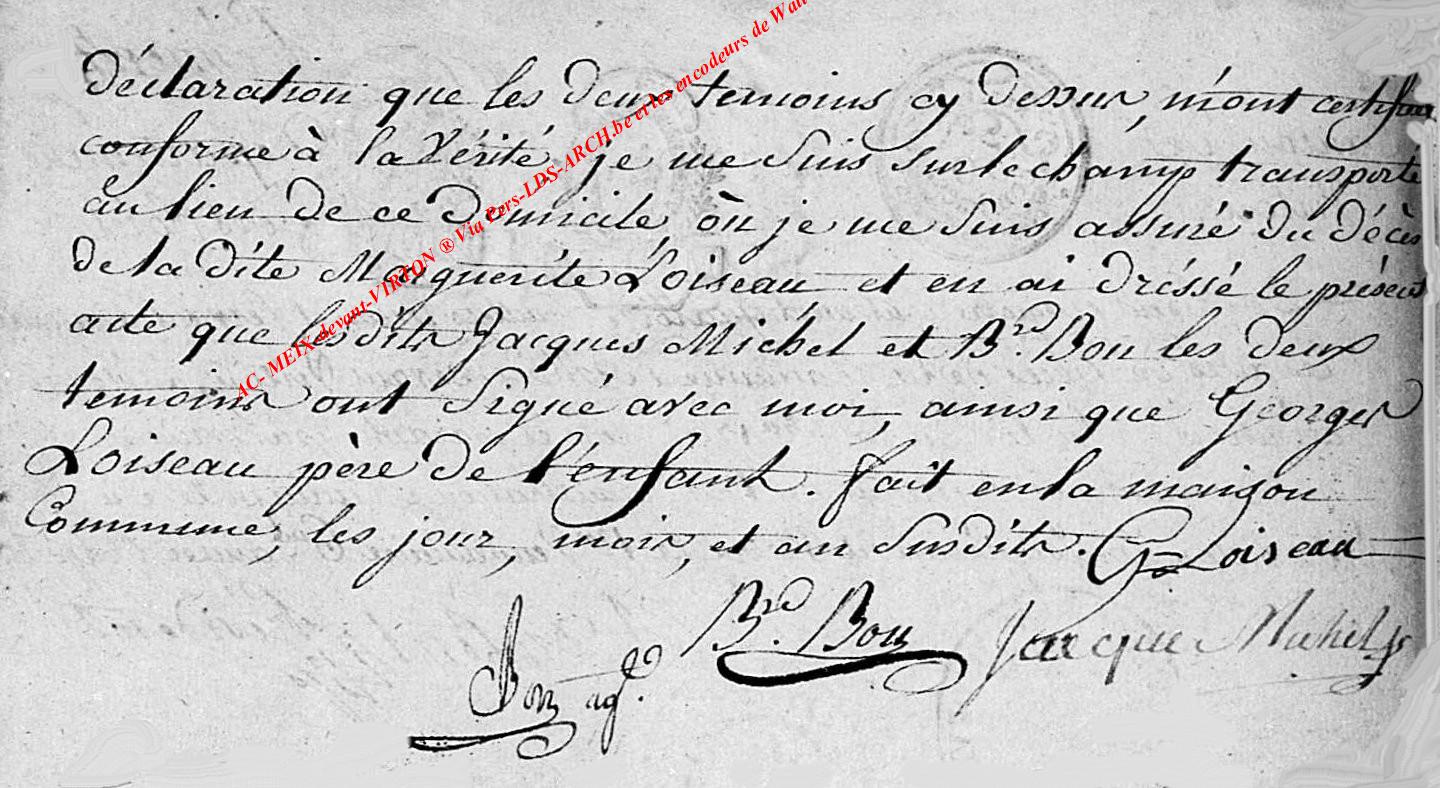 déclaration que les deux temoins cy dessus, m'ont certifiée
conforme à la Vérité, je me suis sur le champ transporté
au lieu de ce domicile où je me suis assuré du décès
de la dite Marguerite Loiseau et en ai dréssé le présent
acte que lesdits Jacques Michel et B.rd Bon les deux
temoins ont signé avec moi, ainsi que Georges
Loiseau père de l'enfant. fait en la maison
Commune, les jour, mois, et an susdits. G Loiseau
B.rd Bon Jacque Michel
Bon ag.t
AC- MEIX-devant-VIRTON ® Via Pers-LDS-ARCH.be et les encodeurs de Wall